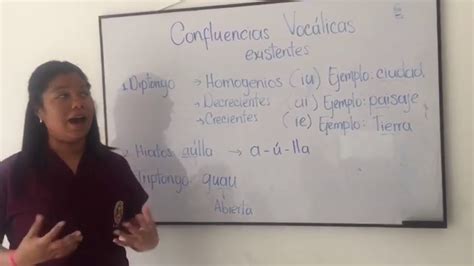 Confluencias Vocálicas
existentes
Diptongo → Homogenios (iu) Ejemplo: ciudad
→ Decrecientes (ai) Ejemplo: paisaje
→ Crecientes (ie) Ejemplo: Tierra
• Hiatos aúlla → a-ú-lla
Triptongo guau
Abierta